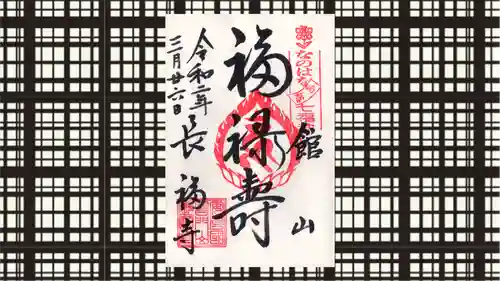 なのはな
七福
館山
福禄寿
令和二年
三月廿六日
長福寺